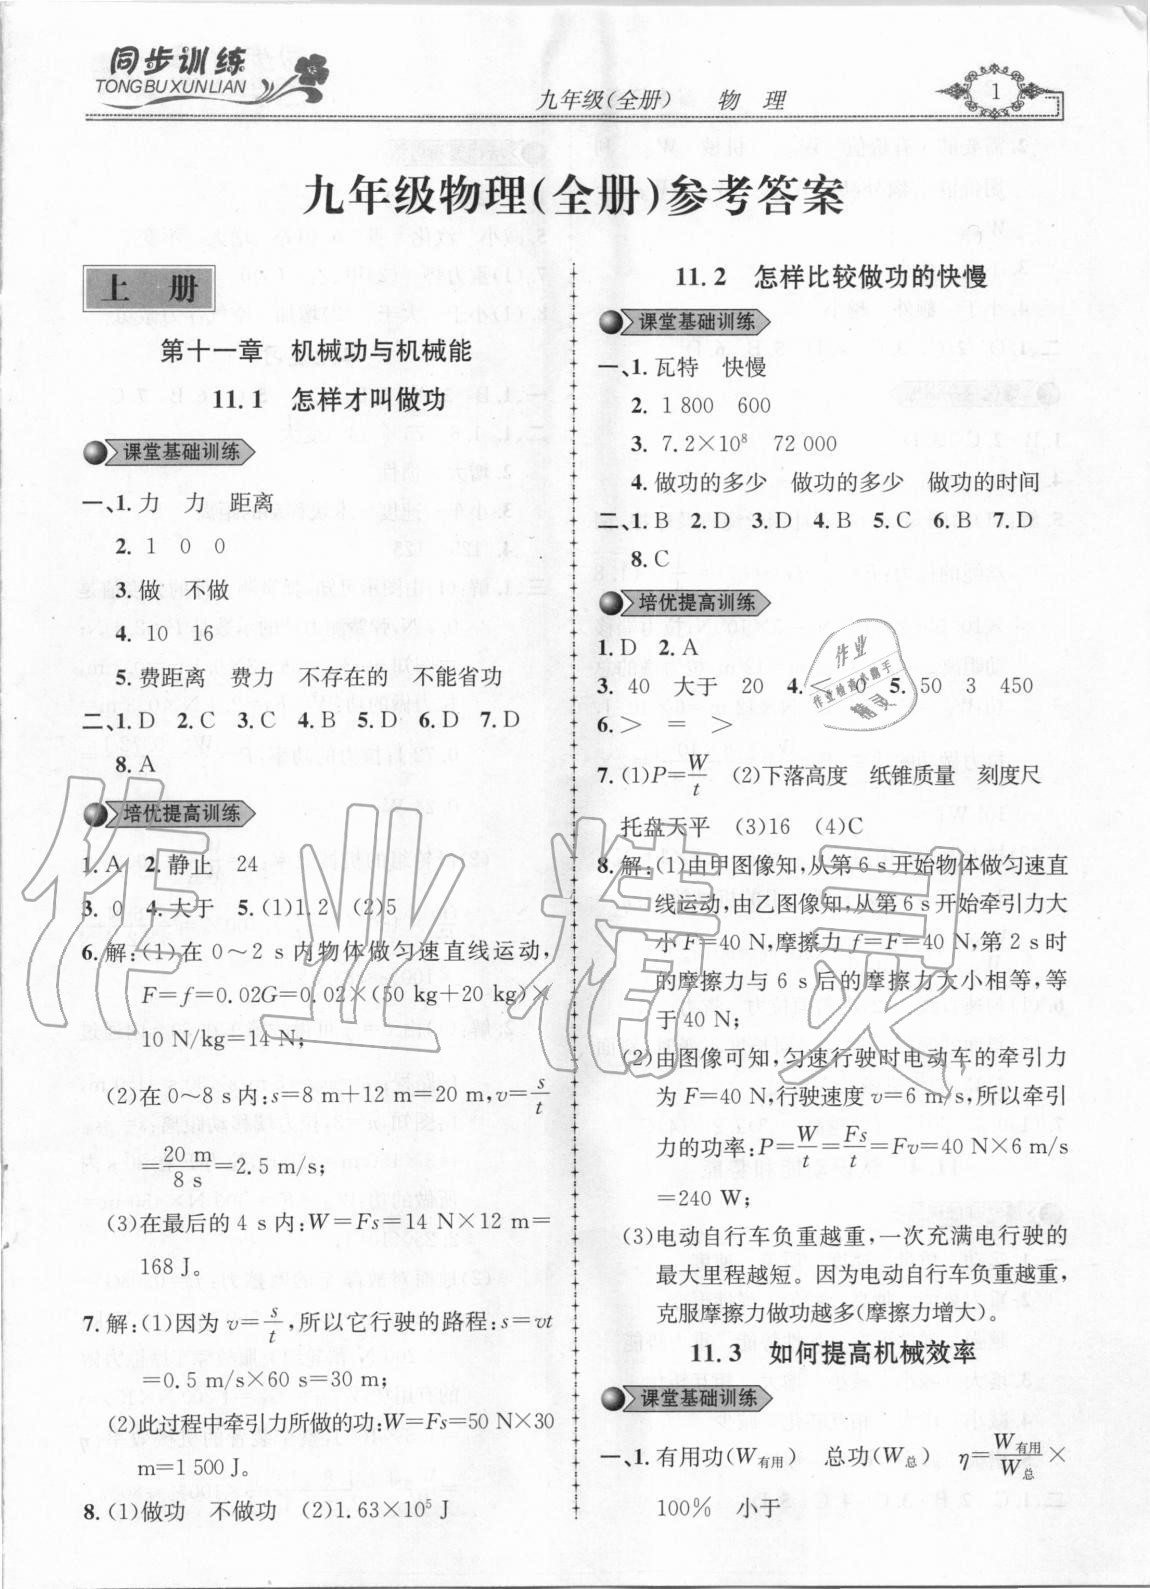 同步训练
TONGBUXUNLIAN
九年级(全册) 物 理
1
九年级物理(全册)参考答案
上 册
第十一章 机械功与机械能
11.1 怎样才叫做功
课堂基础训练
一、1.力 力 距离
2.1 0 0
3.做 不做
4.10 16
5.费距离 费力 不存在的 不能省功
二、1.D 2.C 3.C 4.B 5.D 6.D 7.D
8.A
培优提高训练
1.A 2.静止 24
3.0 4.大于 5.(1)1.2 (2)5
6.解:(1)在 0～2 s 内物体做匀速直线运动,
F=f=0.02G=0.02×(50 kg+20 kg)×
10 N/kg=14 N;
(2)在 0～8 s 内:s=8 m+12 m=20 m,v=s/t
=20 m/8 s=2.5 m/s;
(3)在最后的 4 s 内:W=Fs=14 N×12 m=
168 J。
7.解:(1)因为 v=s/t,所以它行驶的路程:s=vt
=0.5 m/s×60 s=30 m;
(2)此过程中牵引力所做的功:W=Fs=50 N×30
m=1 500 J。
8.(1)做功 不做功 (2)1.63×10⁵ J
11.2 怎样比较做功的快慢
课堂基础训练
一、1.瓦特 快慢
2.1 800 600
3.7.2×10⁸ 72 000
4.做功的多少 做功的多少 做功的时间
二、1.B 2.D 3.D 4.B 5.C 6.B 7.D
8.C
培优提高训练
1.D 2.A
3.40 大于 20 4.< 0 5.50 3 450
6.> = >
7.(1)P=W/t (2)下落高度 纸锥质量 刻度尺
托盘天平 (3)16 (4)C
8.解:(1)由甲图像知,从第 6 s 开始物体做匀速直
线运动,由乙图像知,从第 6 s 开始牵引力大
小 F=40 N,摩擦力 f=F=40 N,第 2 s 时
的摩擦力与 6 s 后的摩擦力大小相等,等
于 40 N;
(2)由图像可知,匀速行驶时电动车的牵引力
为 F=40 N,行驶速度 v=6 m/s,所以牵引
力的功率:P=W/t=Fs/t=Fv=40 N×6 m/s
=240 W;
(3)电动自行车负重越重,一次充满电行驶的
最大里程越短。因为电动自行车负重越重,
克服摩擦力做功越多(摩擦力增大)。
11.3 如何提高机械效率
课堂基础训练
一、1.有用功(W有用) 总功(W总) η=W有用/W总×
100% 小于
作业
作业检查小助手
精灵
作业精灵